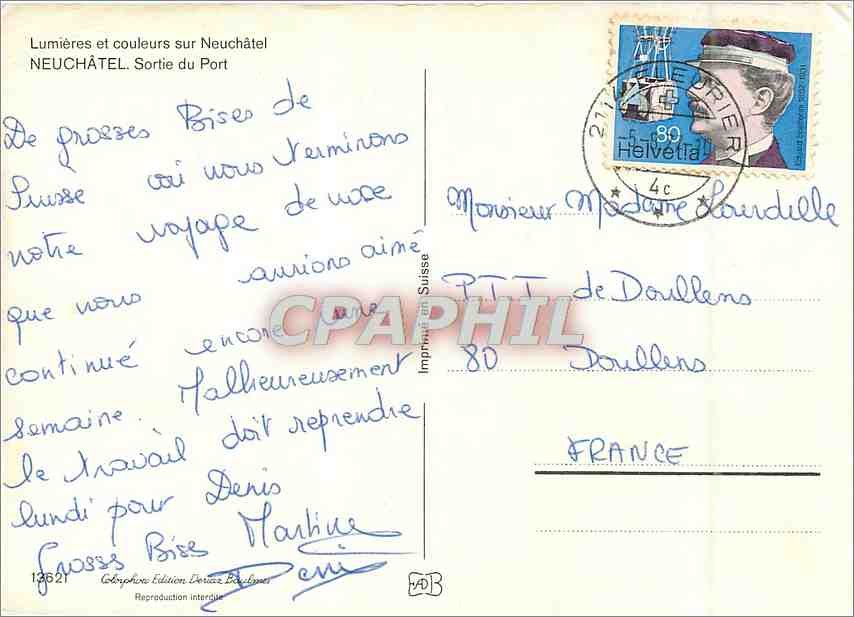 Lumières et couleurs sur Neuchâtel
NEUCHÂTEL. Sortie du Port
De grosses Bises de
Suisse où nous terminons
notre voyage de noce
que nous aurions aimé
continué encore une
semaine. Malheureusement
le travail doit reprendre
lundi pour Denis
Grosses Bises Martine
Denis
13621
Colorphoto Edition Deriaz Baulmes
Reproduction interdite
Imprimé en Suisse
CPAPHIL
2114 FLEURIER
4c
80
Helvetia
Monsieur Madame Lourdelle
PTT de Doullens
80 Doullens
FRANCE